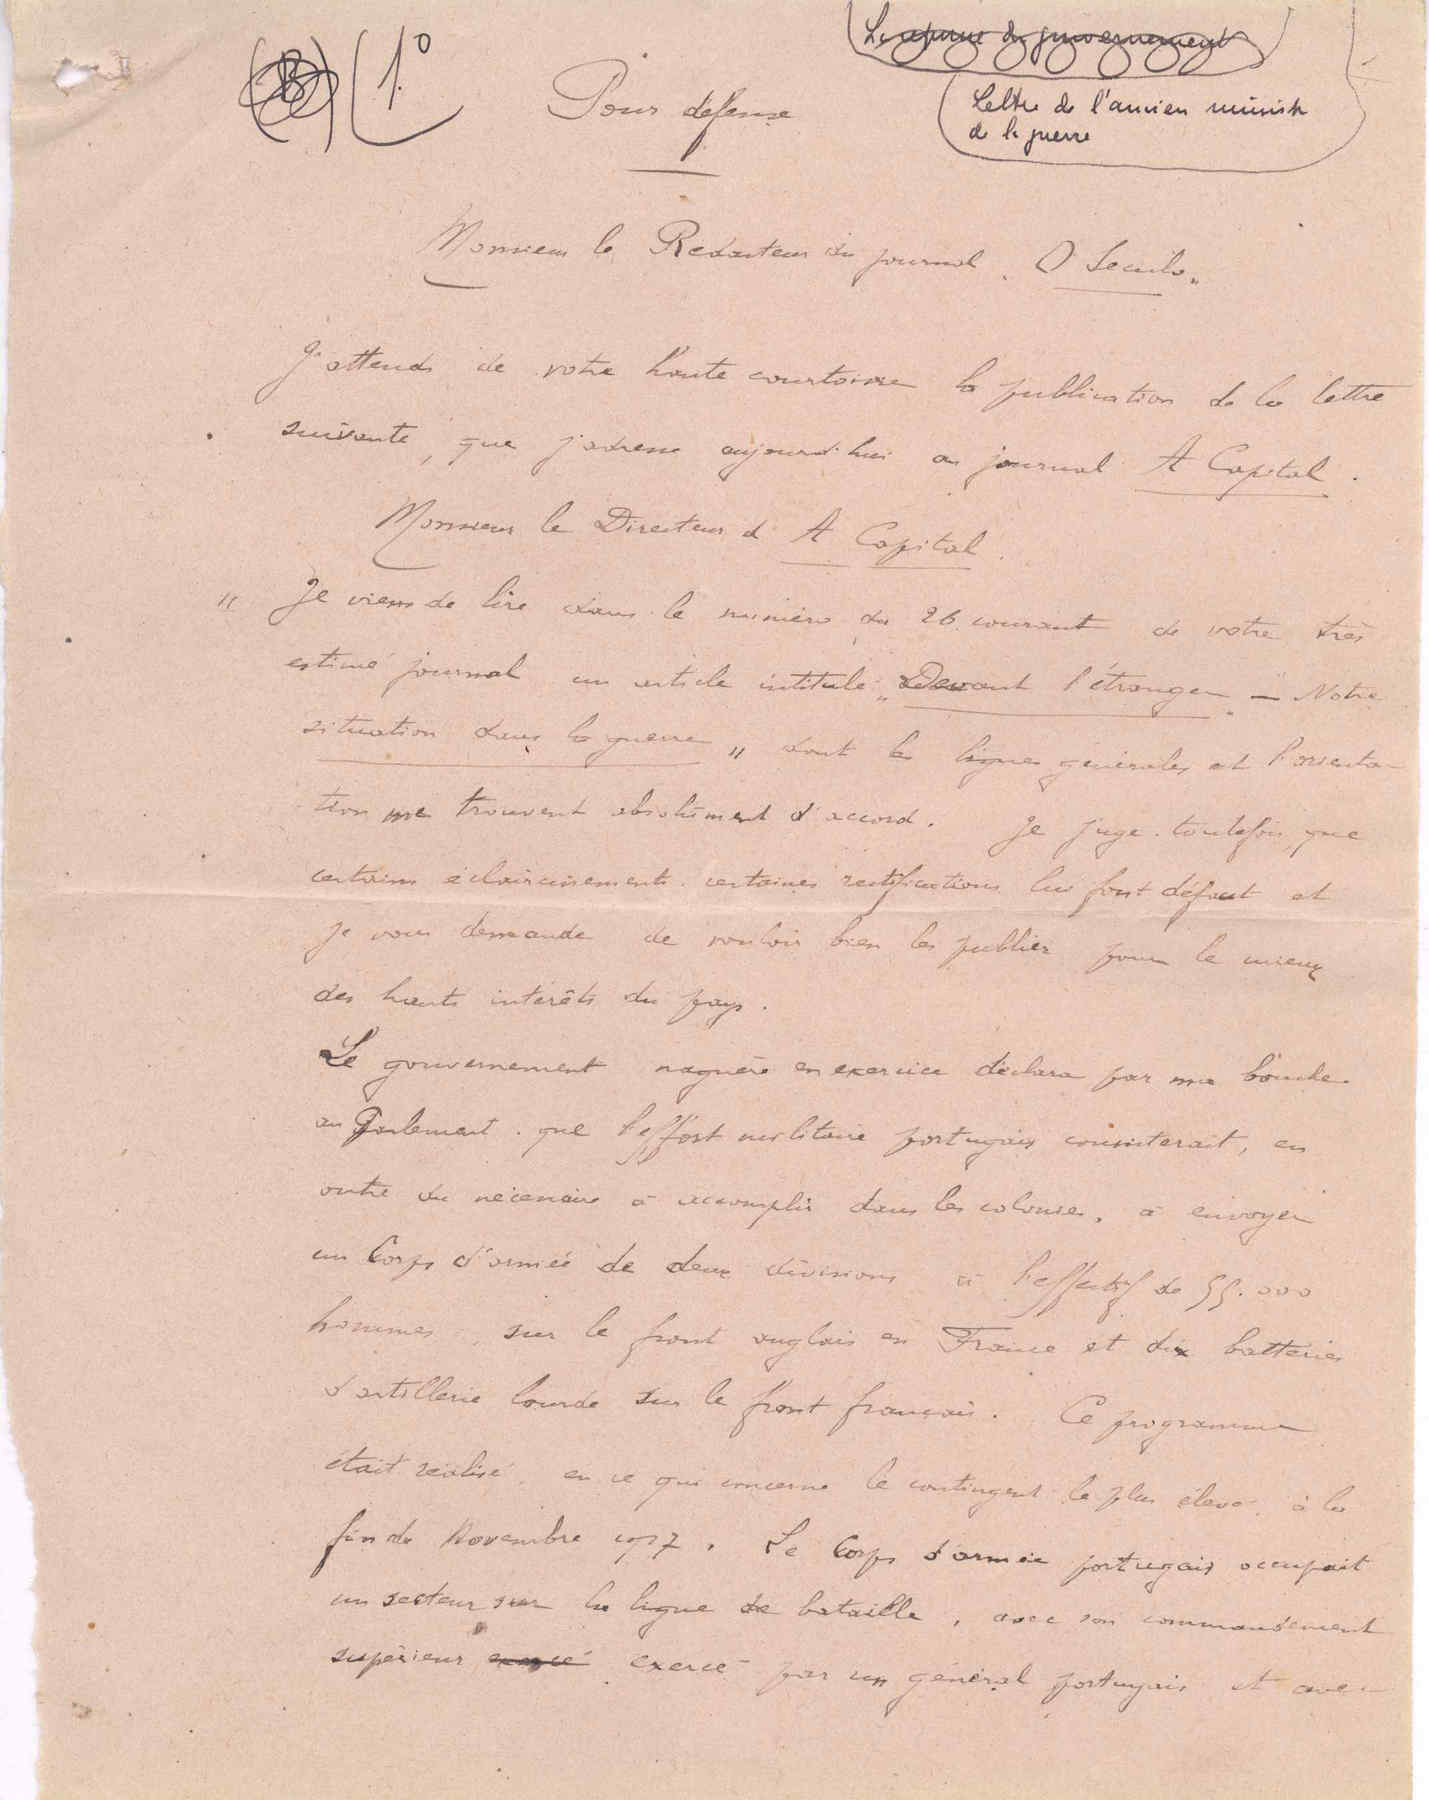 (B) (1º
La réponse du gouvernement
Pour défense
Lettre de l'ancien ministre
de la guerre
Monsieur le Redacteur du journal "O Seculo"
J'attends de votre haute courtoisie la publication de la lettre
suivante, que j'adresse aujourd'hui au journal A Capital.
Monsieur le Directeur d'A Capital.
" Je viens de lire dans le numéro du 26 courant de votre très
estimé journal un article intitulé "Devant l'étranger — Notre
situation dans la guerre" dont les lignes générales et l'orienta-
tion me trouvent absolument d'accord. Je juge toutefois, que
certains éclaircissements certaines rectifications lui font défaut et
je vous demande de vouloir bien les publier pour le mieux
des hauts intérêts du pays.
Le gouvernement naguère en exercice déclara par ma bouche
au Parlement que l'effort militaire portugais consisterait, en
outre du nécessaire à accomplir dans les colonies, à envoyer
un Corps d'armée de deux divisions à l'effectif de 55.000
hommes, sur le front anglais en France et dix batteries
d'artillerie lourde sur le front français. Ce programme
était réalisé, en ce qui concerne le contingent le plus élevé, à la
fin de Novembre 1917. Le Corps d'armée portugais occupait
un secteur sur la ligne de bataille, avec son commandement
supérieur exercé exercé par un général portugais et avec